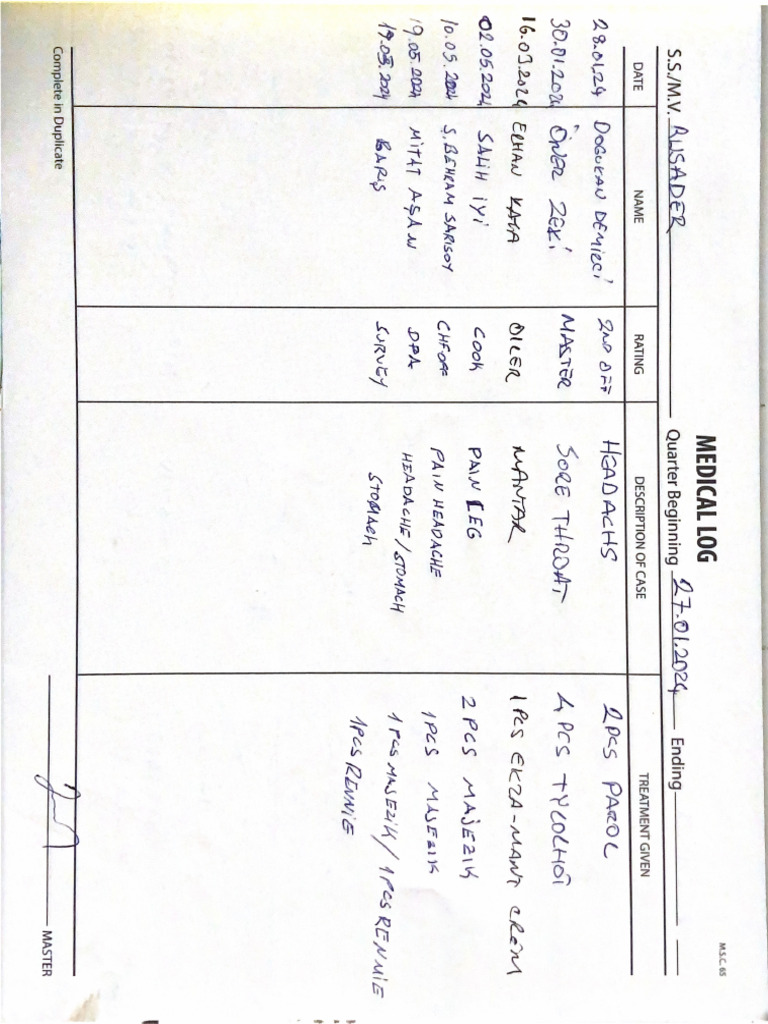 MEDICAL LOG
M.S.C. 65
S.S./M.V. RUSADER Quarter Beginning 27.01.2024 Ending
DATE NAME RATING DESCRIPTION OF CASE TREATMENT GIVEN
28.01.24 DOGUKAN DEMİRCİ 2ND OFF HEADACHS 2PCS PAROL
30.01.2024 ÖNER ZEKİ MASTER SORE THROAT 4 PCS TYCOLHOT
16.03.2024 ELHAN KAYA OILER MANTAR 1 PCS EKZA-MANT CREM
02.05.2024 SALİH İYİ COOK PAIN LEG 2 PCS MAJEZIK
10.05.2024 S.BEHRAM SARISOY CHFOFF PAIN HEADACHE 1PCS MAJEZIK
19.05.2024 MİTAT AŞAN DPA HEADACHE/STOMACH 1 PCS MAJEZIK/ 1PCS RENNIE
19.05.2024 BARIŞ SURVEY STOMACH 1PCS RENNIE
Complete in Duplicate MASTER